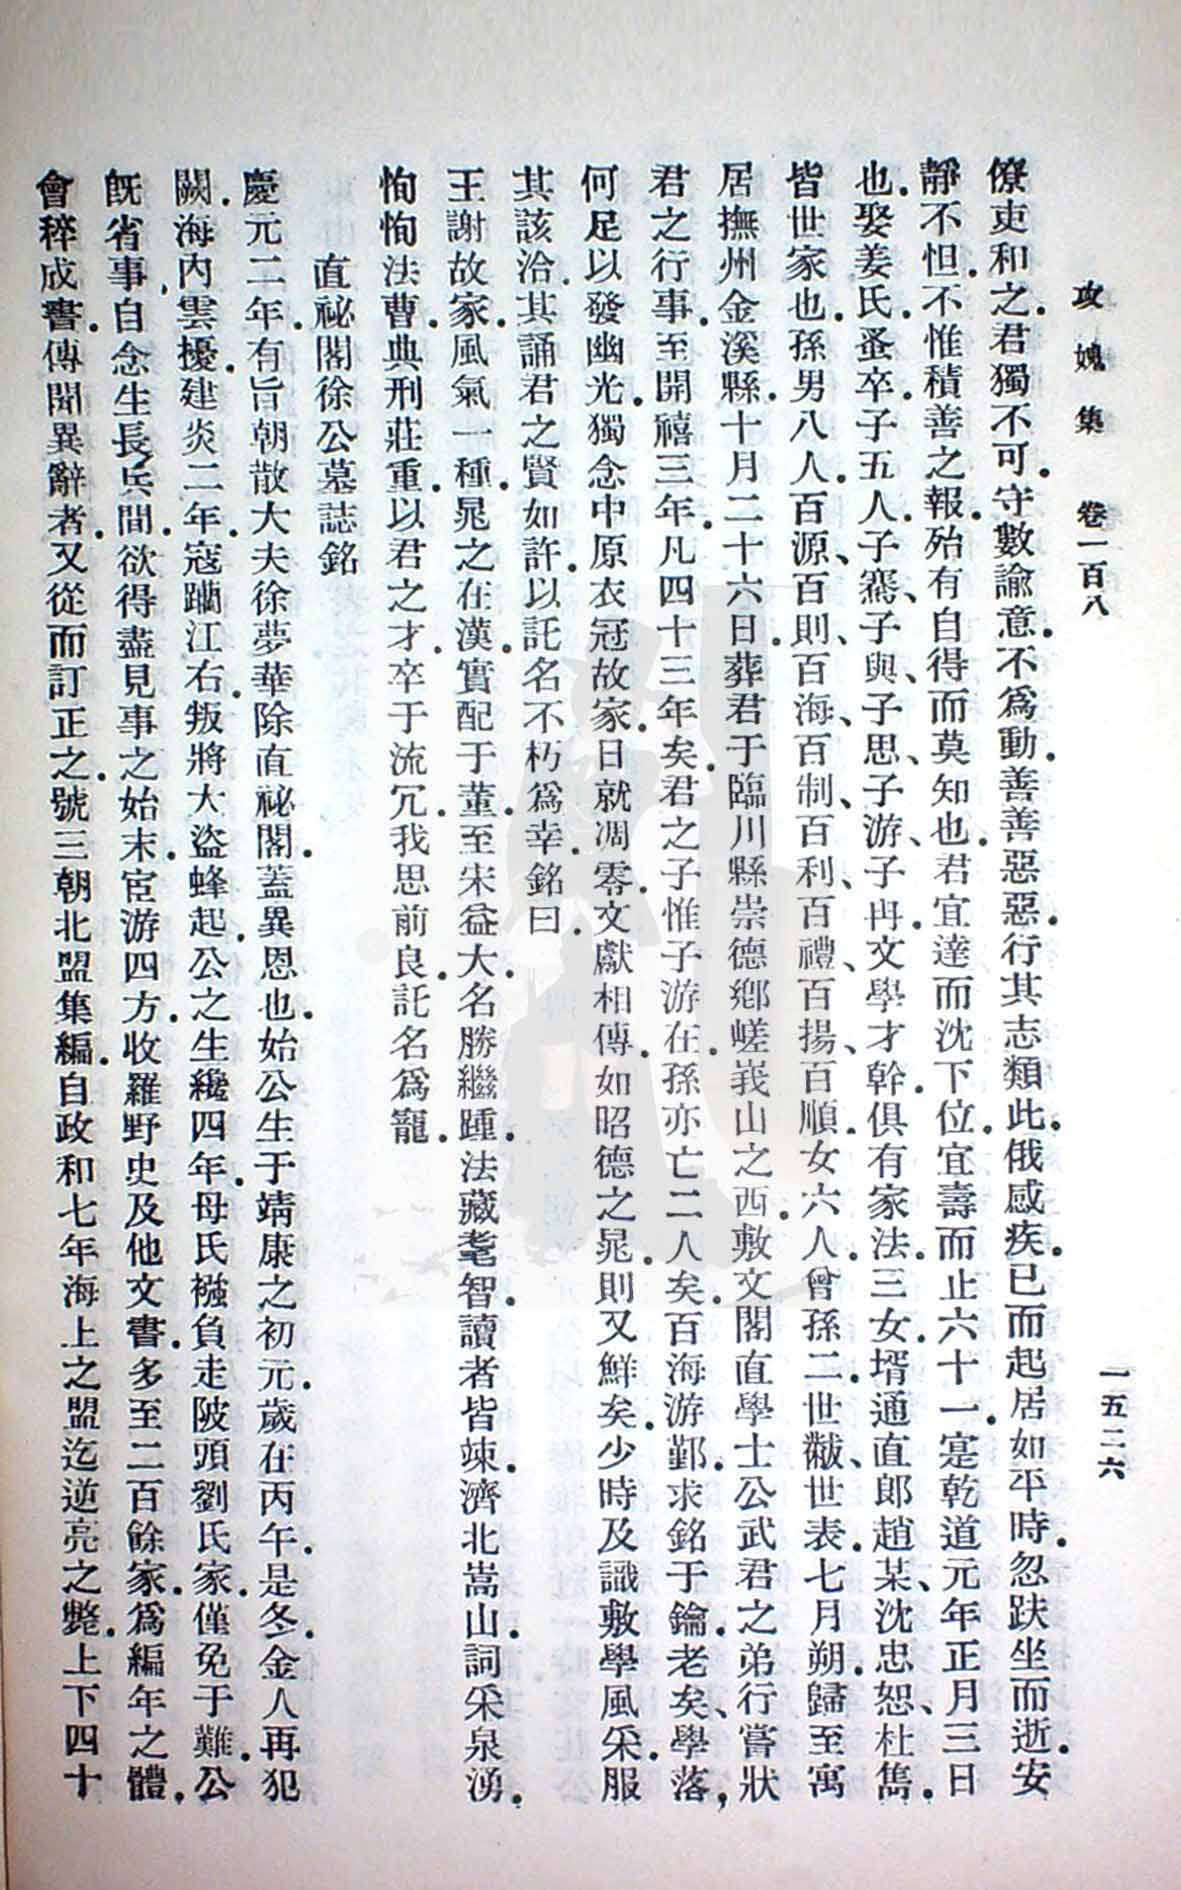 攻媿集　卷一百八　一五二六
僚吏和之．君獨不可．守數諭意．不爲動．善善惡惡．行其志類此．俄感疾．已而起居如平時．忽趺坐而逝．安
靜不怛．不惟積善之報．殆有自得而莫知也．君宜達而沈下位．宜壽而止六十一．寔乾道元年正月三日
也．娶姜氏．蚤卒．子五人．子騫、子與、子思、子游、子冉．文學才幹．俱有家法．三女．壻通直郎趙某、沈忠恕、杜雋．
皆世家也．孫男八人．百源、百則、百海、百制、百利、百禮、百揚、百順．女六人．曾孫二．世黻、世表．七月朔．歸至寓
居撫州金溪縣．十月二十六日．葬君于臨川縣崇德鄉嵯峩山之西．敷文閣直學士公武君之弟行．嘗狀
君之行事．至開禧三年．凡四十三年矣．君之子惟子游在．孫亦亡二人矣．百海游鄞．求銘于鑰．老矣、學落，
何足以發幽光．獨念中原衣冠故家．日就凋零．文獻相傳．如昭德之晁．則又鮮矣．少時及識敷學風采．服
其該洽．其誦君之賢如許．以託名不朽爲幸．銘曰．
王謝故家．風氣一種．晁之在漢．實配于董．至宋益大．名勝繼踵．法藏耄智．讀者皆竦．濟北嵩山．詞采泉湧．
恂恂法曹．典刑莊重．以君之才．卒于流冗．我思前良．託名爲寵．
直祕閣徐公墓誌銘
慶元二年．有旨朝散大夫徐夢莘除直祕閣．蓋異恩也．始公生于靖康之初元．歲在丙午．是冬．金人再犯
闕．海內雲擾．建炎二年．寇躪江右．叛將大盜蜂起．公之生纔四年．母氏襁負走陂頭劉氏家．僅免于難．公
既省事．自念生長兵間．欲得盡見事之始末．宦游四方．收羅野史及他文書．多至二百餘家．爲編年之體．
會稡成書．傳聞異辭者．又從而訂正之．號三朝北盟集編．自政和七年海上之盟迄逆亮之斃．上下四十